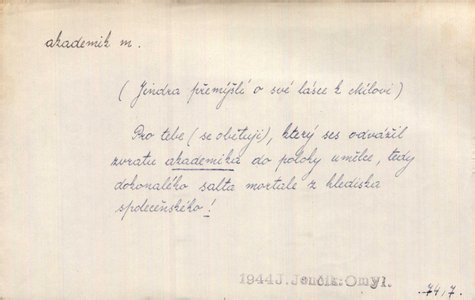 akademik m.
( Jindra přemýšlí o své lásce k Mílovi )
Pro tebe ( se obětuji ), který ses odvážil
zvratu akademika do polohy umělce, tedy
dokonalého salta mortale z hlediska
společenského!
1944 J. Jenčík: Omyl.
74,7.